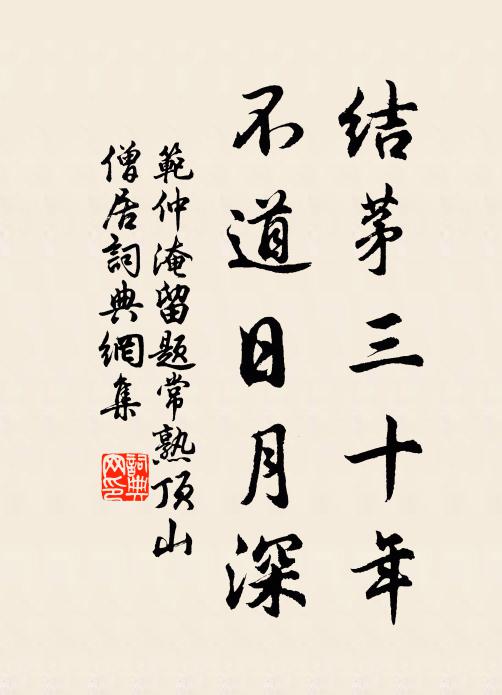 结茅三十年
不道日月深
範仲淹留题常熟顶山
僧居詞典網集
詞典网印